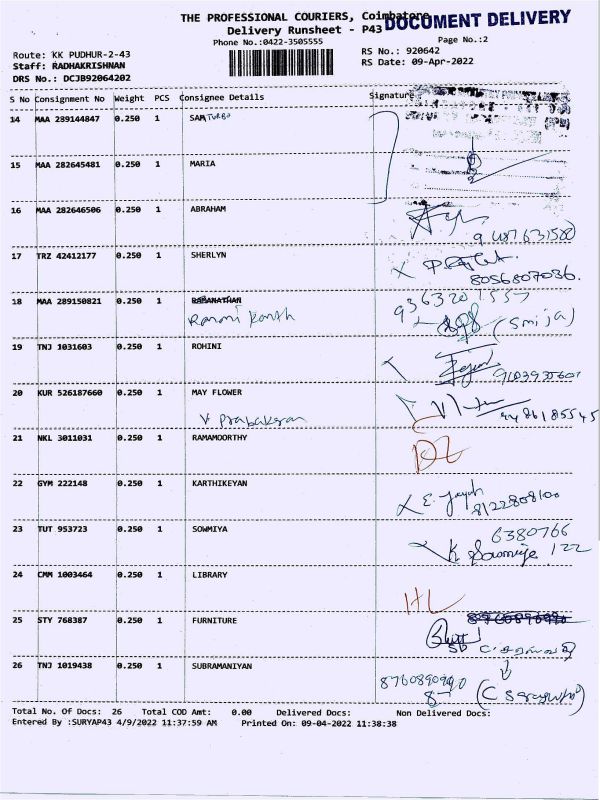 THE PROFESSIONAL COURIERS, Coimbatore
DOCUMENT DELIVERY
Delivery Runsheet - P43
Phone No.:0422-3505555
Page No.:2
Route: KK PUDHUR-2-43
RS No.: 920642
Staff: RADHAKRISHNAN
RS Date: 09-Apr-2022
DRS No.: DCJB92064202
S No Consignment No Weight PCS Consignee Details Signature
14 MAA 289144847 0.250 1 SAM TURBO
15 MAA 282645481 0.250 1 MARIA
16 MAA 282646506 0.250 1 ABRAHAM
17 TRZ 42412177 0.250 1 SHERLYN
8056807036.
18 MAA 289150821 0.250 1
(Smija)
19 TNJ 1031603 0.250 1 ROHINI
20 KUR 526187660 0.250 1 MAY FLOWER
V Prabakaran
21 NKL 3011031 0.250 1 RAMAMOORTHY
DL
22 GYM 222148 0.250 1 KARTHIKEYAN
8122808100
23 TUT 953723 0.250 1 SOWMIYA
6380766
K Sowmiya 122
24 CMM 1003464 0.250 1 LIBRARY
HL
25 STY 768387 0.250 1 FURNITURE
26 TNJ 1019438 0.250 1 SUBRAMANIYAN
Total No. Of Docs: 26 Total COD Amt: 0.00 Delivered Docs: Non Delivered Docs:
Entered By :SURYAP43 4/9/2022 11:37:59 AM Printed On: 09-04-2022 11:38:38